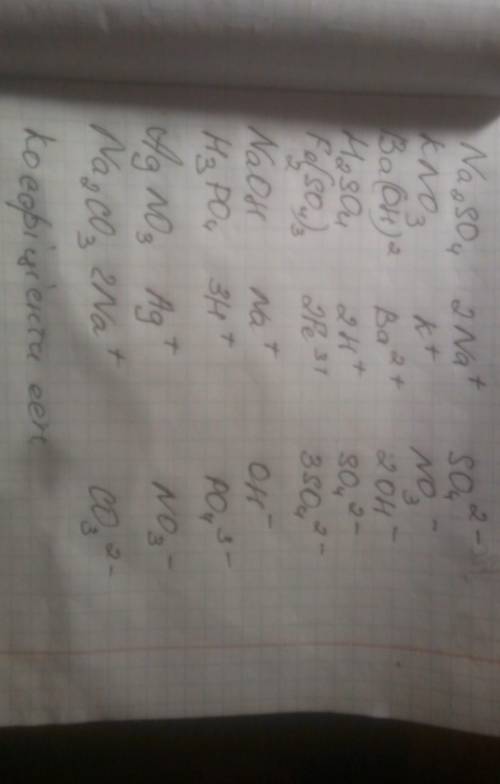 Na₂SO₄ 2Na⁺ SO₄²⁻
KNO₃ K⁺ NO₃⁻
Ba(OH)₂ Ba²⁺ 2OH⁻
H₂SO₄ 2H⁺ SO₄²⁻
Fe₂(SO₄)₃ 2Fe³⁺ 3SO₄²⁻
NaOH Na⁺ OH⁻
H₃PO₄ 3H⁺ PO₄³⁻
AgNO₃ Ag⁺ NO₃⁻
Na₂CO₃ 2Na⁺ CO₃²⁻
Коефіцієнти